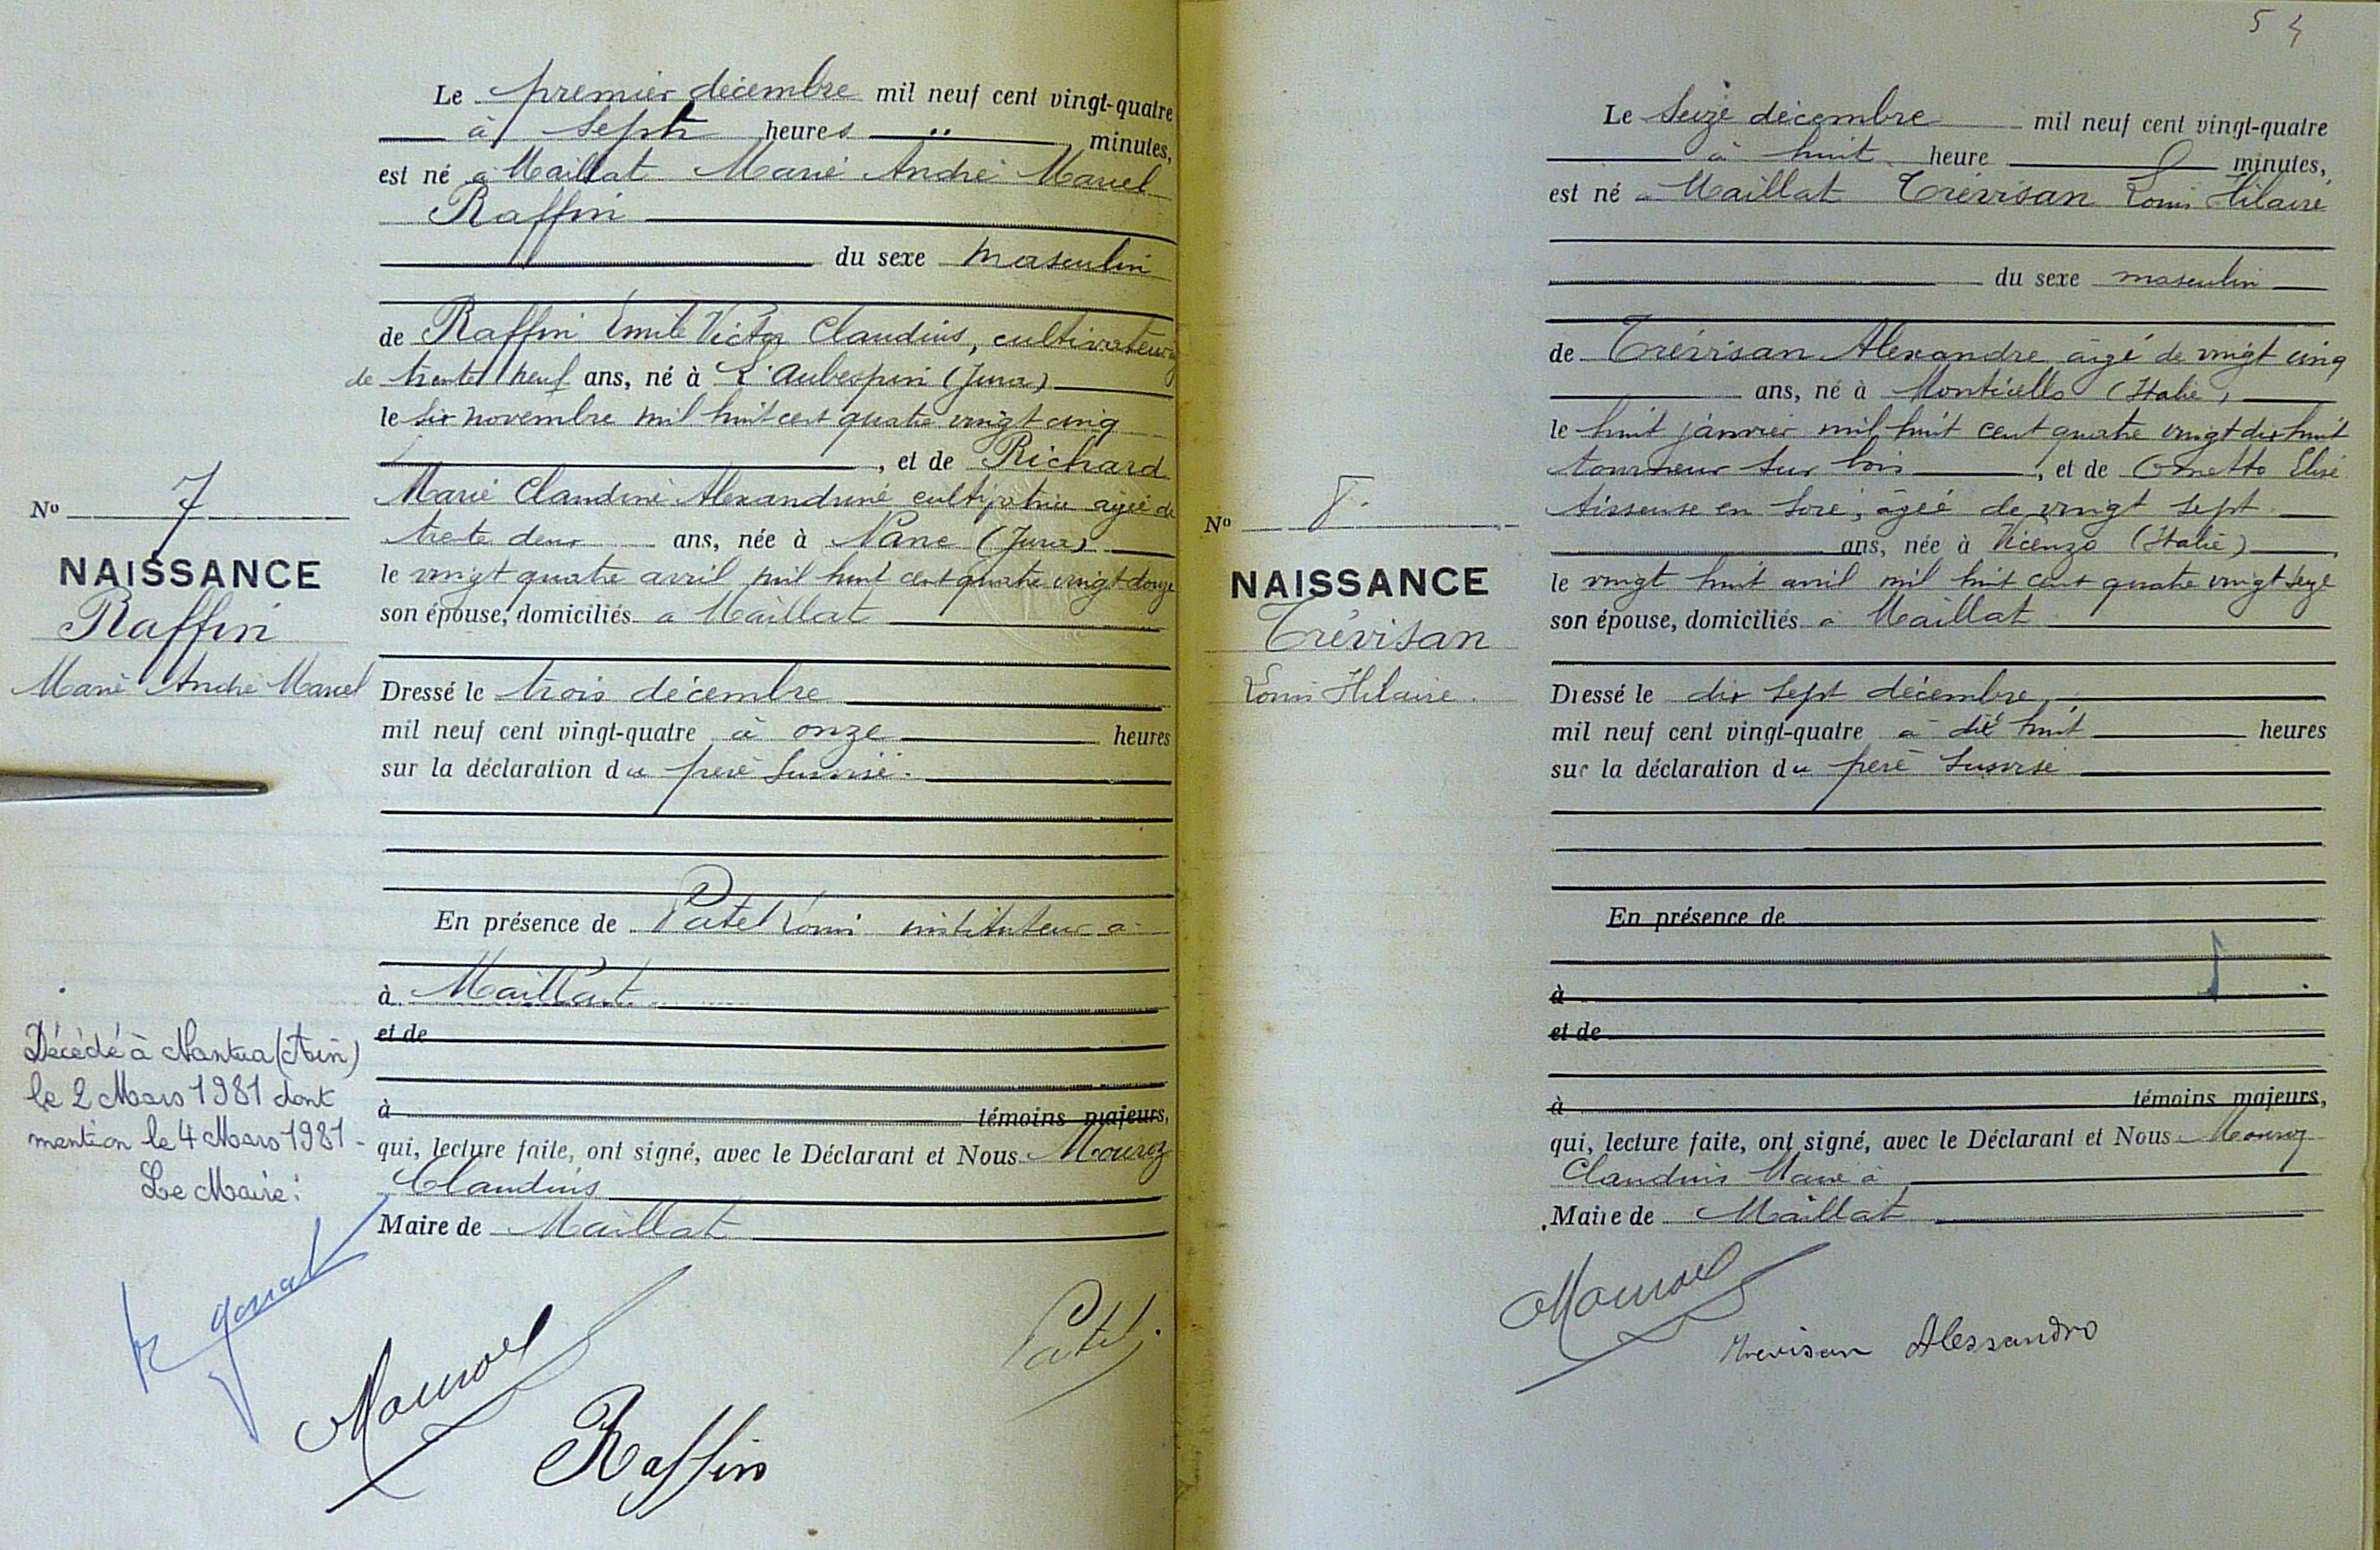 Le premier décembre mil neuf cent vingt-quatre
à sept heures minutes,
est né à Maillat Marie André Marcel
Raffin
du sexe masculin
de Raffin Emile Victor Claudius, cultivateur
de trente neuf ans, né à L'Aubespin (Jura)
le six novembre mil huit cent quatre vingt cinq
, et de Richard
Marie Claudine Alexandrine cultivatrice agée de
trete deux ans, née à Nanc (Jura)
le vingt quatre avril mil huit cent quatre vingt douze
son épouse, domiciliés à Maillat
Dressé le trois décembre
mil neuf cent vingt-quatre à onze heures
sur la déclaration du père susvisé.
En présence de Patel Louis instituteur à
à Maillat
et de
à témoins majeurs,
qui, lecture faite, ont signé, avec le Déclarant et Nous Mourez
Claudius
Maire de Maillat
Patel
Raffin
No 7
NAISSANCE
Raffin
Marie André Marcel
Décédé à Nantua (Ain)
le 2 Mars 1981 dont
mention le 4 Mars 1981 -
Le Maire:
54
Le Seize décembre mil neuf cent vingt-quatre
à huit heure minutes,
est né à Maillat Trévisan Louis Hilaire
du sexe masculin
de Trévisan Alexandre âgé de vingt cinq
ans, né à Monticello (Italie)
le huit janvier mil huit cent quatre vingt dix huit
tourneur sur bois, et de Ometto Elise
tisseuse en soie, âgée de vingt sept
ans, née à Vicenzo (Italie),
le vingt huit avril mil huit cent quatre vingt seize
son épouse, domiciliés à Maillat
Dressé le dix sept décembre
mil neuf cent vingt-quatre à dix huit heures
sur la déclaration du père susvisé
En présence de
à
et de
à témoins majeurs,
qui, lecture faite, ont signé, avec le Déclarant et Nous Mourez
Claudius Maire à
Maire de Maillat
Trevisan Alessandro
No 8.
NAISSANCE
Trévisan
Louis Hilaire.